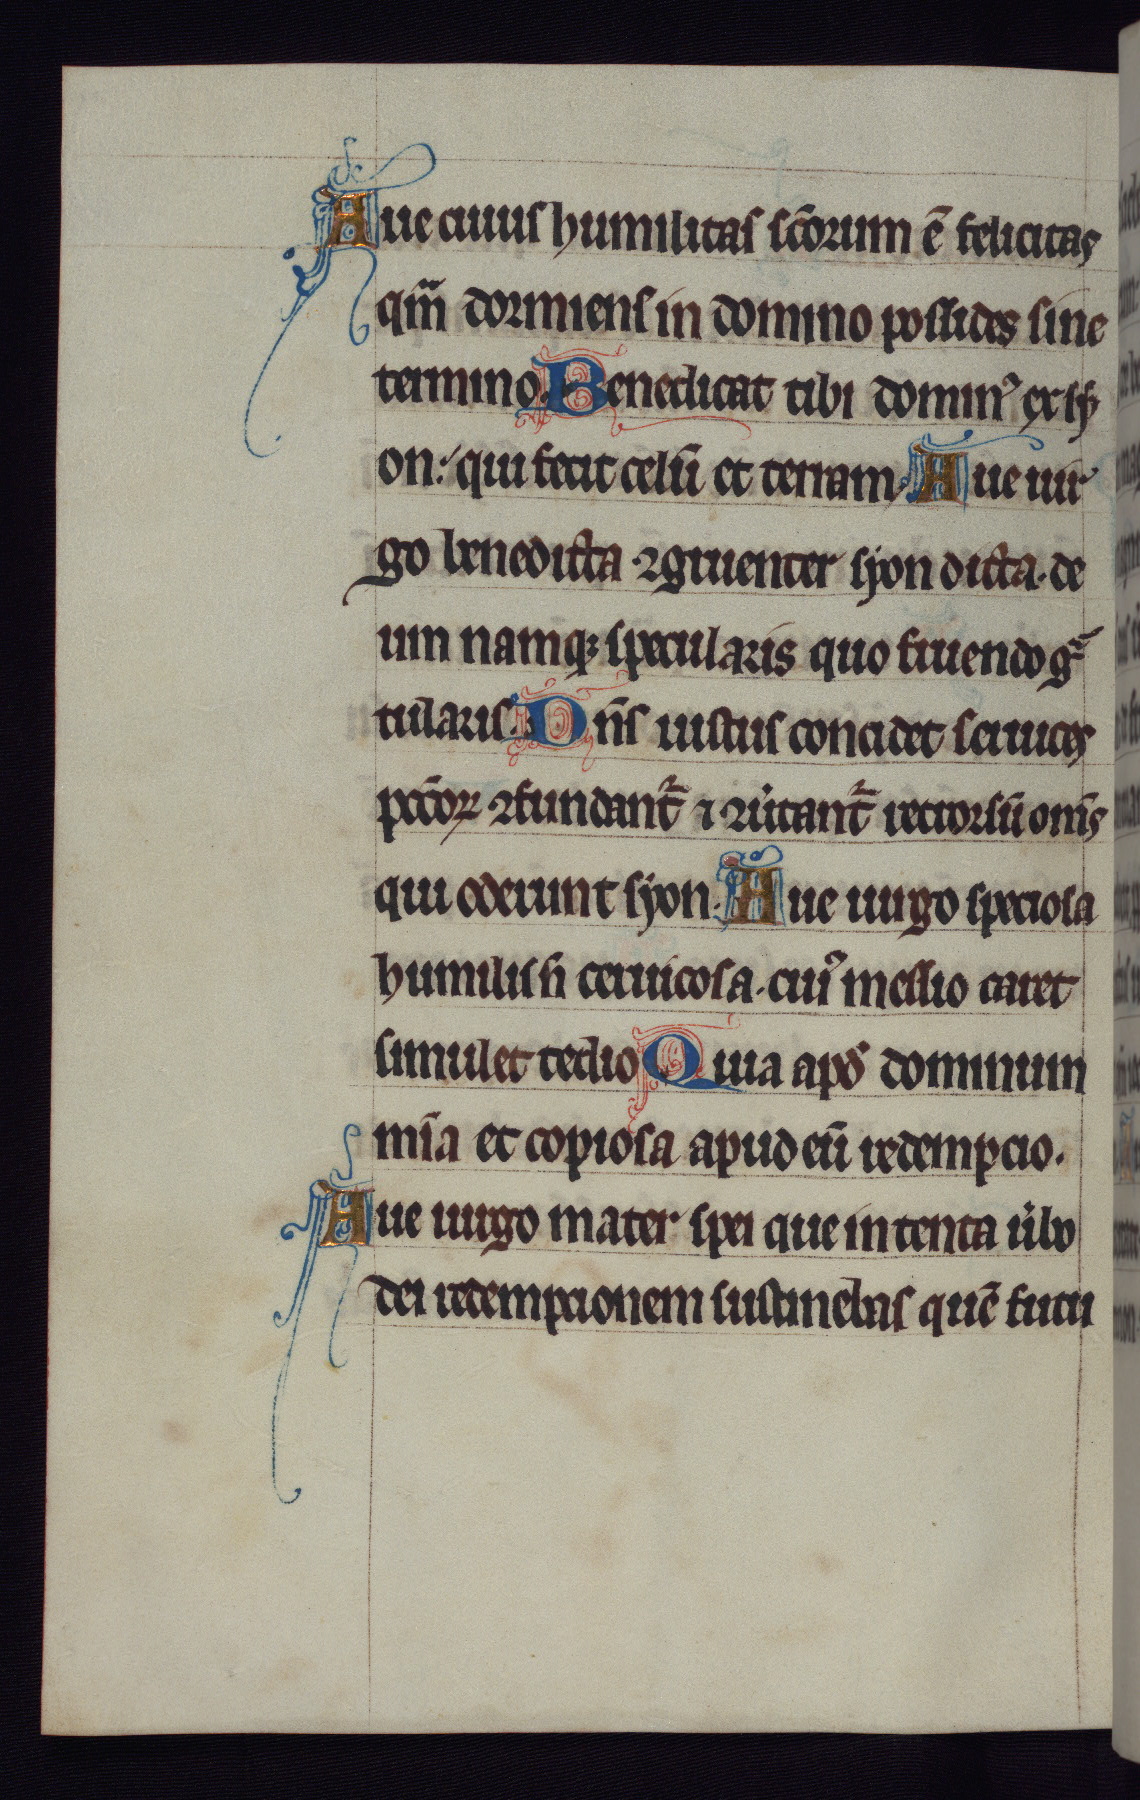 Aue cuius humilitas scōrum ē felicitas
qm̄ dormiens in domino possides sine
termino. Benedicat tibi domin᾽ ex sy
on: qui fecit celū et terram. Aue uir
go benedicta ꝯgruenter syon dicta. de
um namqꝫ specularis quo fruendo
tularis. Dn̄s iustus concidet ceruices
pccōꝝ ꝯfundant᷑ ⁊ ꝯu̾tant᷑ retrorsū om̄s
qui oderunt syon. Aue uirgo speciosa
humilis n̄ ceruicosa. cui᾽ messio caret
simul et tedio Quia apd̄ dominum
mīa et copiosa apud eū redempcio.
Aue uirgo mater spei que intenta u̾bo
dei redempcionem sustinebas quē futu